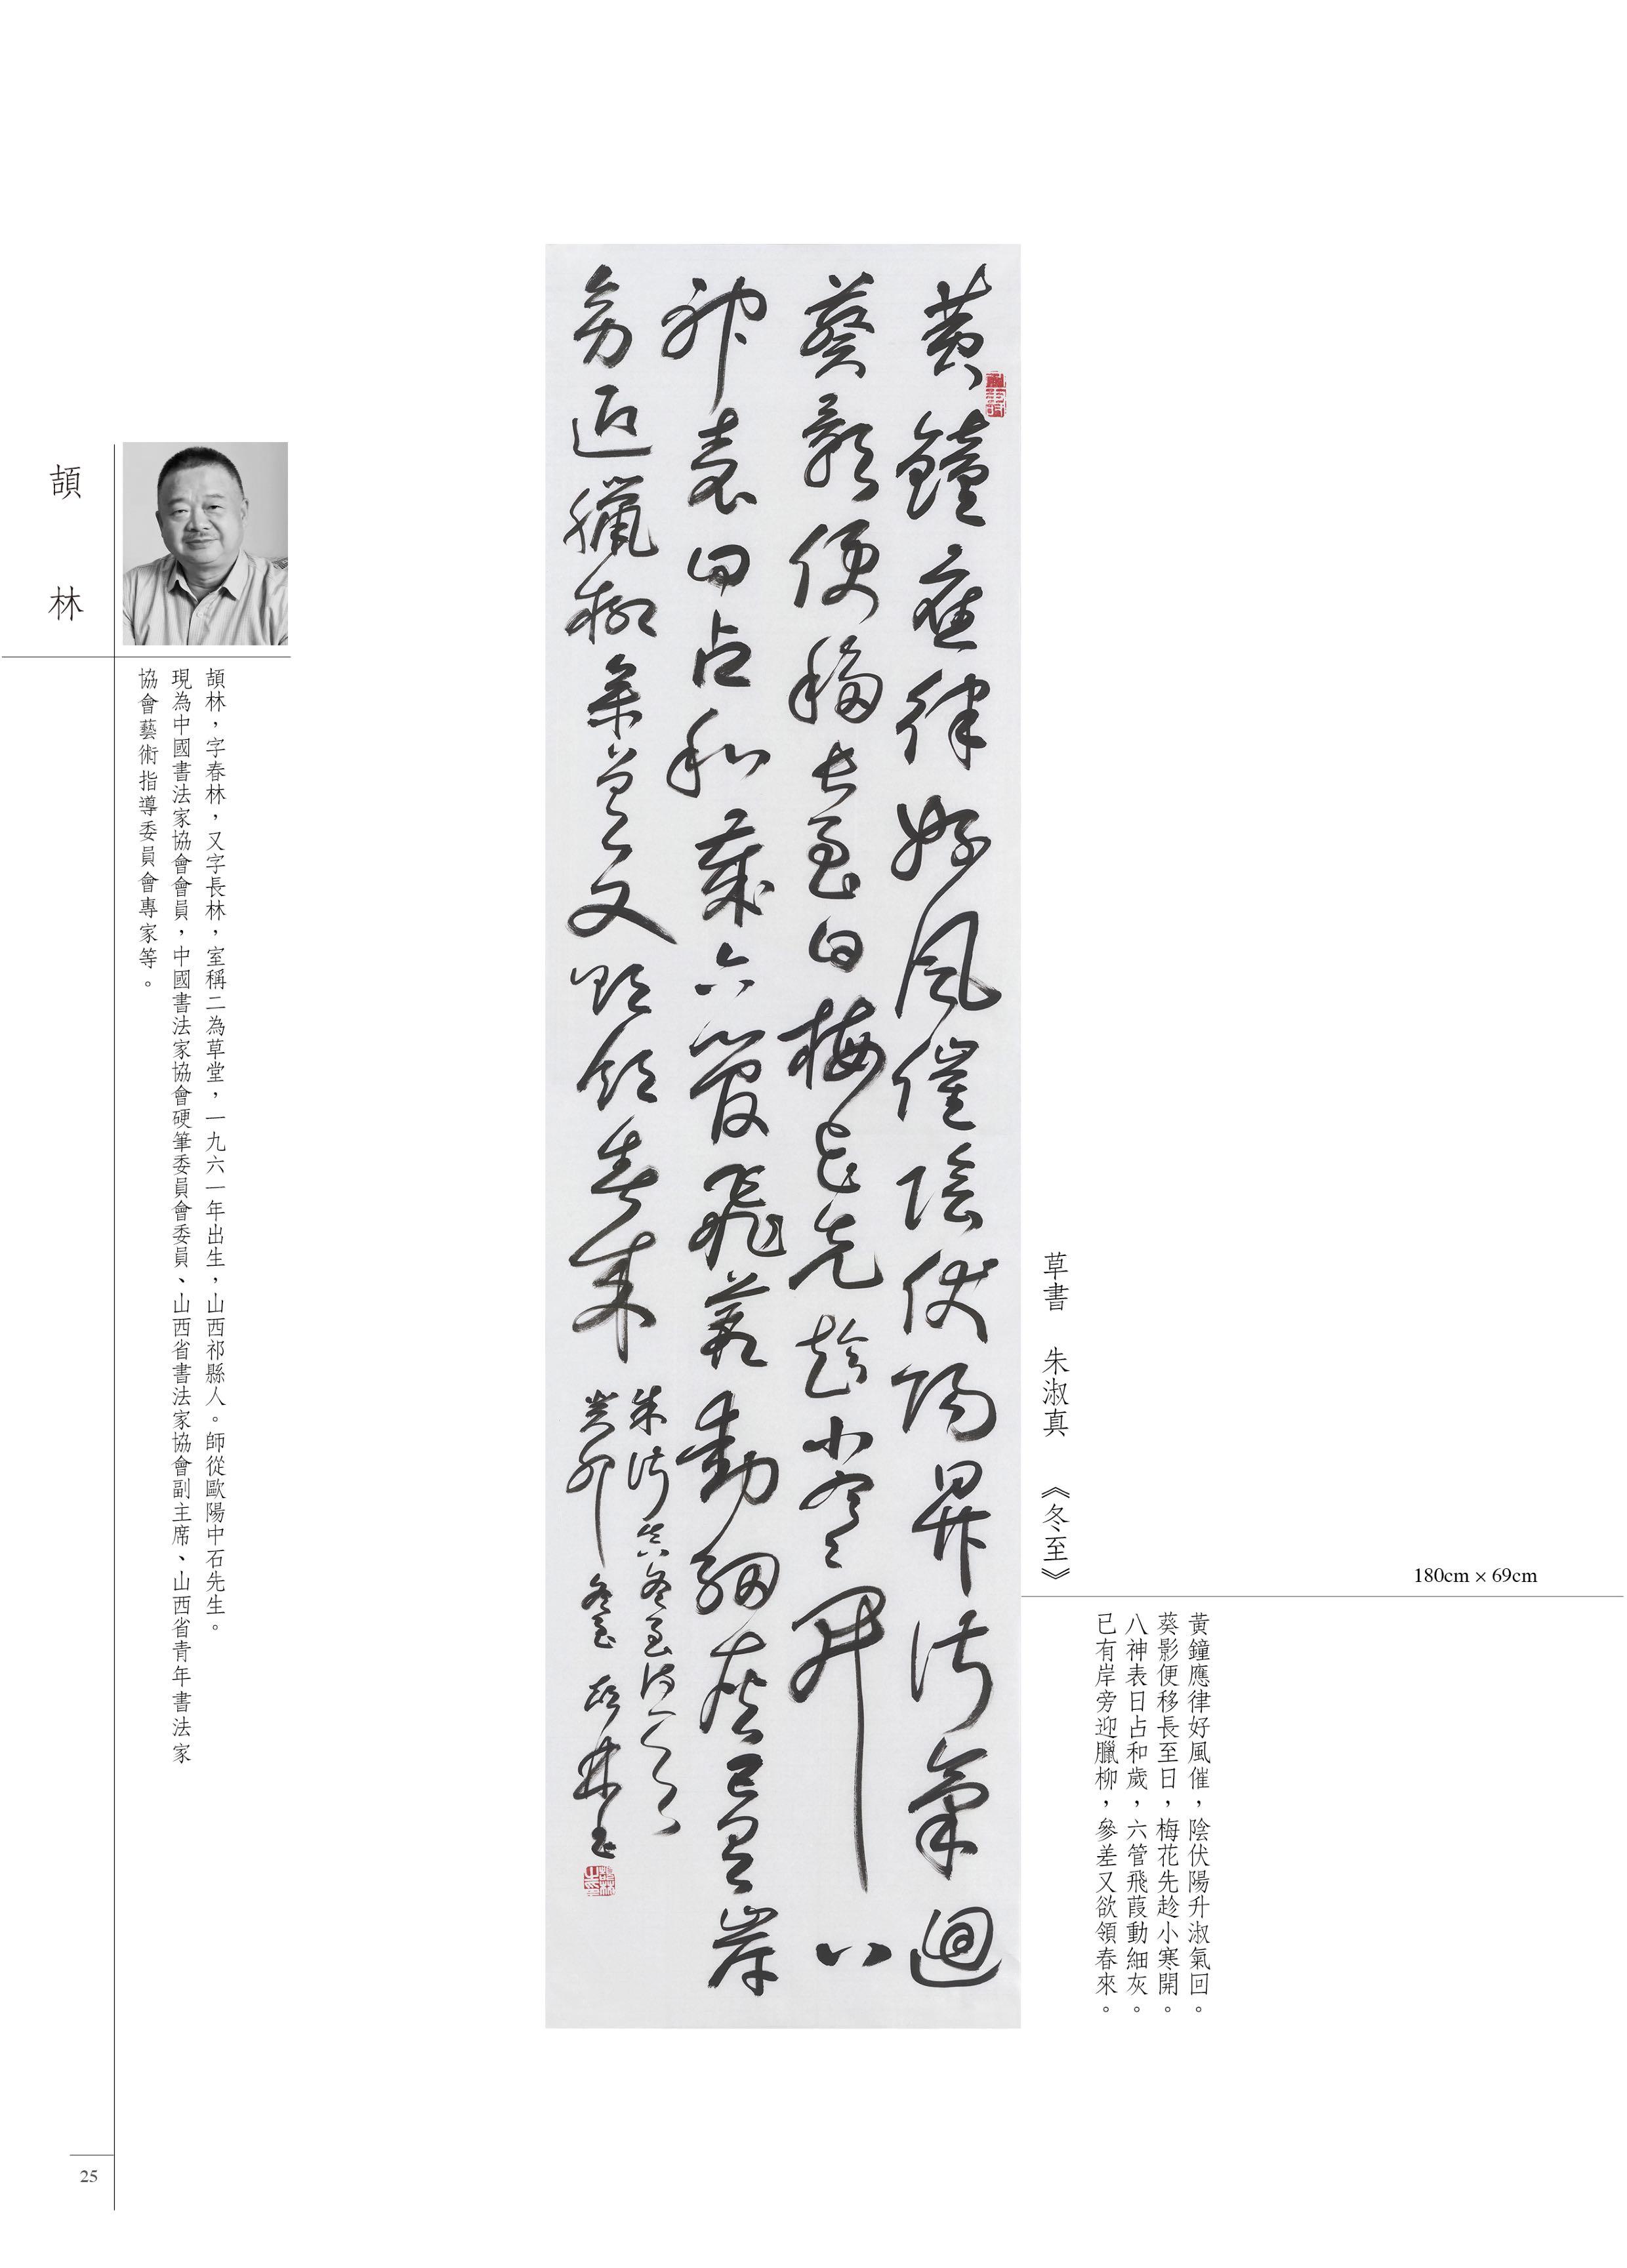 草書 朱淑真 《冬至》
180cm × 69cm
黃鐘應律好風催，陰伏陽升淑氣回。
葵影便移長至日，梅花先趁小寒開。
八神表日占和歲，六管飛葭動細灰。
已有岸旁迎臘柳，參差又欲領春來。
黃鐘應律好風催陰伏陽昇淑氣迴
葵影便移長至日梅花先趁小寒開八
神表日占和歲六管飛葭動細灰已有岸
旁迎臘柳參差又欲領春來
朱淑真冬至詩一首
癸卯冬至頡林書
頡林
頡林，字春林，又字長林，室稱二為草堂，一九六一年出生，山西祁縣人。師從歐陽中石先生。
現為中國書法家協會會員，中國書法家協會硬筆委員會委員、山西省書法家協會副主席、山西省青年書法家
協會藝術指導委員會專家等。
25